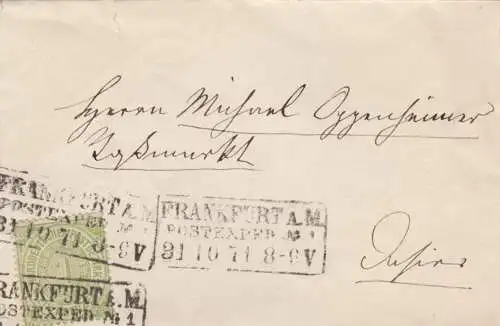 Herrn Michael Oppenheimer
Roßmarkt
FRANKFURT A.M.
POSTEXPED. № 1
31 10 71 8-9 V
FRANKFURT A.M.
POSTEXPED. № 1
31 10 71 8-9 V
Dahier
FRANKFURT A.M.
POSTEXPED № 1